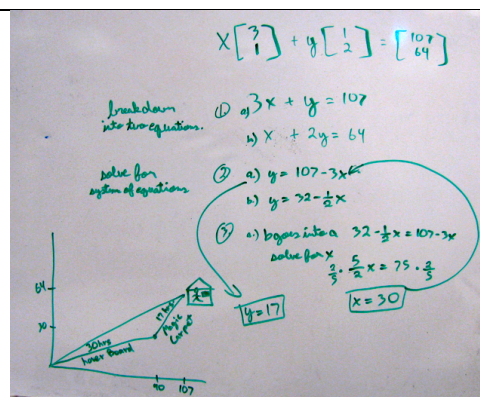 x [3 1] + y [1 2] = [107 64]
breakdown into two equations.
① a) 3x + y = 107
b) x + 2y = 64
solve for system of equations
② a.) y = 107 - 3x
b.) y = 32 - 1/2 x
③ a.) b goes into a 32 - 1/2 x = 107 - 3x
solve for x
2/5 · 5/2 x = 75 · 2/5
y = 17
x = 30
64
30
30 hrs
hover Board
17 hrs
Magic Carpet
90 107